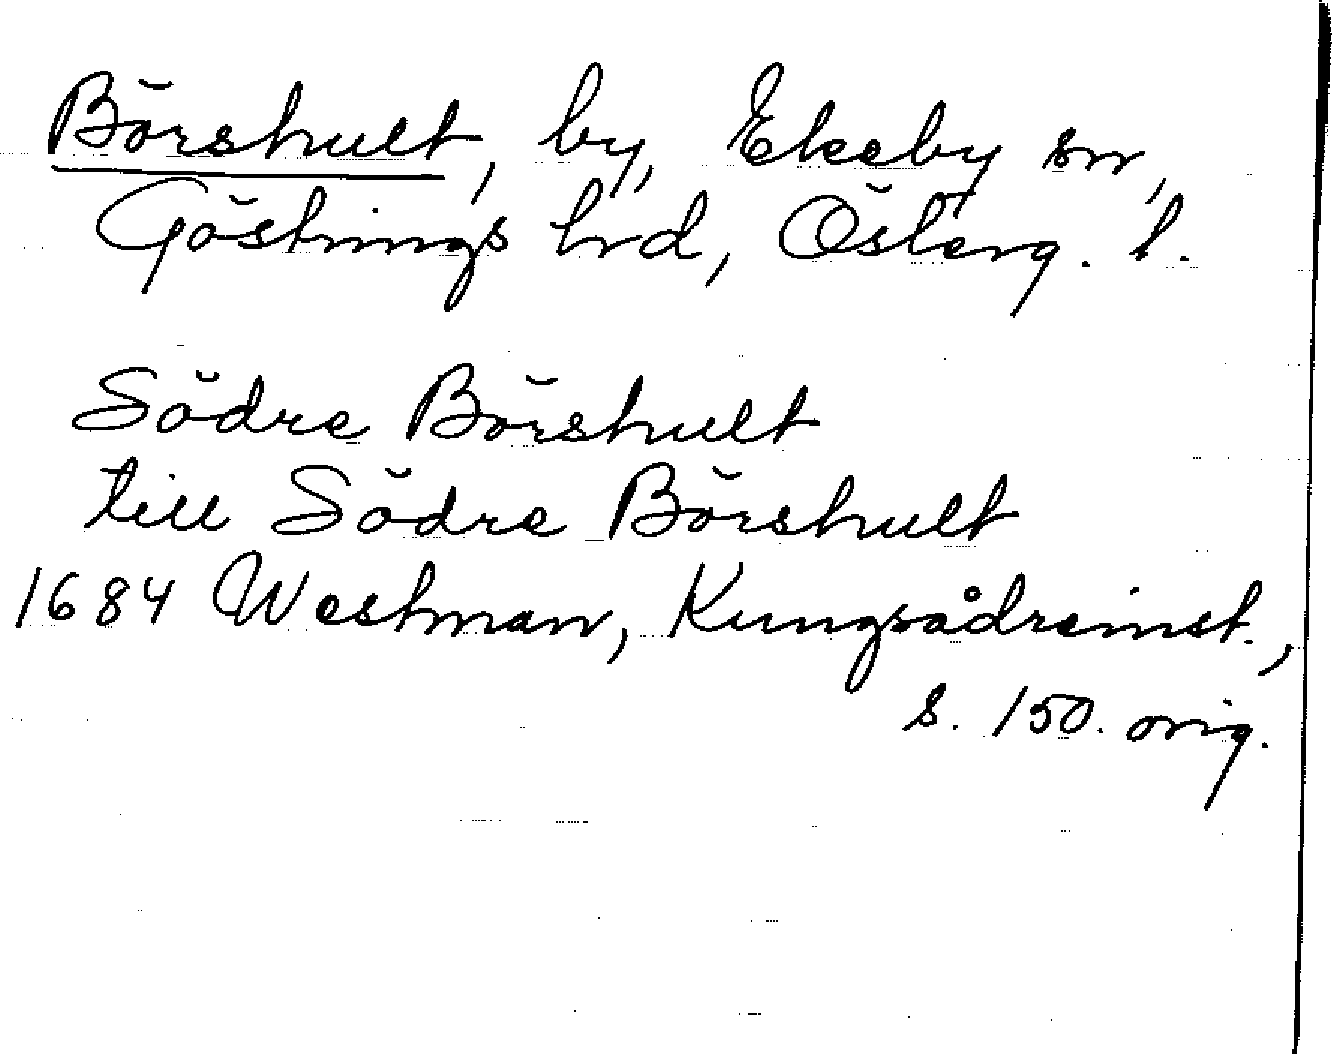 Börshult, by, Ekeby sn,
Göstrings hrd, Österg. l.
Södre Börshult
till Södre Börshult
1684 Westman, Kungsådreinst.,
s. 150. orig.